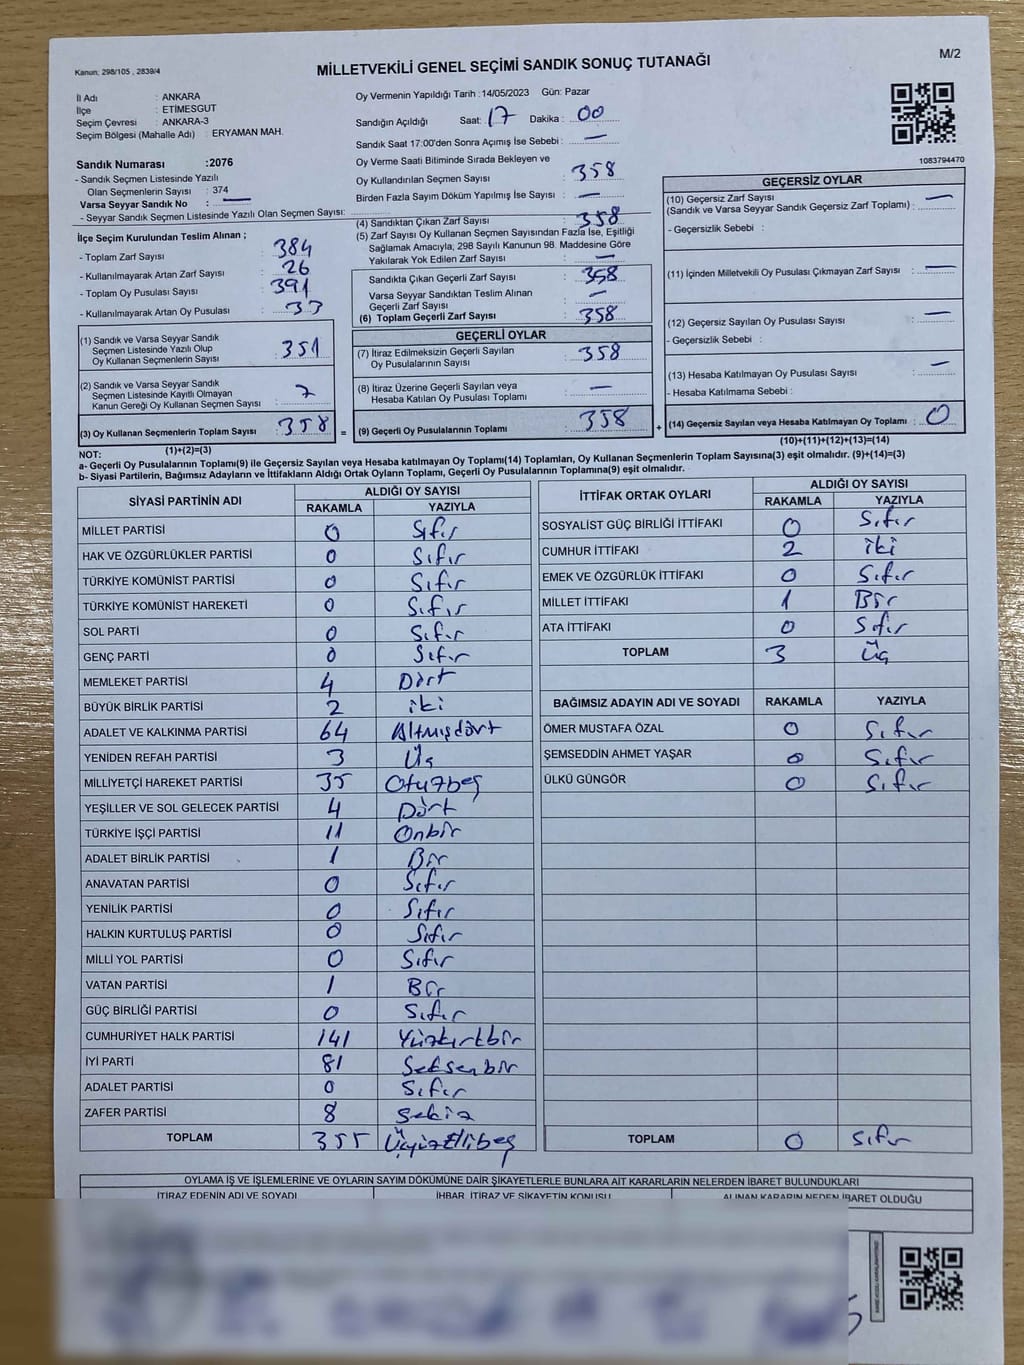 Kanun; 298/105 , 2839/4
MİLLETVEKİLİ GENEL SEÇİMİ SANDIK SONUÇ TUTANAĞI
M/2
İl Adı : ANKARA
İlçe : ETİMESGUT
Seçim Çevresi : ANKARA-3
Seçim Bölgesi (Mahalle Adı) : ERYAMAN MAH.
Sandık Numarası :2076
- Sandık Seçmen Listesinde Yazılı
Olan Seçmenlerin Sayısı : 374
Varsa Seyyar Sandık No : —
- Seyyar Sandık Seçmen Listesinde Yazılı Olan Seçmen Sayısı:
Oy Vermenin Yapıldığı Tarih :14/05/2023 Gün: Pazar
Sandığın Açıldığı Saat: 17 Dakika : 00
Sandık Saat 17:00'den Sonra Açımış İse Sebebi : —
Oy Verme Saati Bitiminde Sırada Bekleyen ve
Oy Kullandırılan Seçmen Sayısı : 358
Birden Fazla Sayım Döküm Yapılmış İse Sayısı : —
1083794470
İlçe Seçim Kurulundan Teslim Alınan ;
- Toplam Zarf Sayısı : 384
- Kullanılmayarak Artan Zarf Sayısı : 26
- Toplam Oy Pusulası Sayısı : 391
- Kullanılmayarak Artan Oy Pusulası : 33
(1) Sandık ve Varsa Seyyar Sandık
Seçmen Listesinde Yazılı Olup
Oy Kullanan Seçmenlerin Sayısı : 351
(2) Sandık ve Varsa Seyyar Sandık
Seçmen Listesinde Kayıtlı Olmayan
Kanun Gereği Oy Kullanan Seçmen Sayısı : 7
(3) Oy Kullanan Seçmenlerin Toplam Sayısı : 358
(1)+(2)=(3)
(4) Sandıktan Çıkan Zarf Sayısı : 358
(5) Zarf Sayısı Oy Kullanan Seçmen Sayısından Fazla İse, Eşitliği
Sağlamak Amacıyla, 298 Sayılı Kanunun 98. Maddesine Göre
Yakılarak Yok Edilen Zarf Sayısı : —
Sandıkta Çıkan Geçerli Zarf Sayısı : 358
Varsa Seyyar Sandıktan Teslim Alınan
Geçerli Zarf Sayısı : —
(6) Toplam Geçerli Zarf Sayısı : 358
GEÇERLİ OYLAR
(7) İtiraz Edilmeksizin Geçerli Sayılan
Oy Pusulalarının Sayısı : 358
(8) İtiraz Üzerine Geçerli Sayılan veya
Hesaba Katılan Oy Pusulası Toplamı : —
= (9) Geçerli Oy Pusulalarının Toplamı : 358
GEÇERSİZ OYLAR
(10) Geçersiz Zarf Sayısı
(Sandık ve Varsa Seyyar Sandık Geçersiz Zarf Toplamı) : —
- Geçersizlik Sebebi :
(11) İçinden Milletvekili Oy Pusulası Çıkmayan Zarf Sayısı : —
(12) Geçersiz Sayılan Oy Pusulası Sayısı : —
- Geçersizlik Sebebi :
(13) Hesaba Katılmayan Oy Pusulası Sayısı : —
- Hesaba Katılmama Sebebi :
+ (14) Geçersiz Sayılan veya Hesaba Katılmayan Oy Toplamı : 0
(10)+(11)+(12)+(13)=(14)
NOT:
a- Geçerli Oy Pusulalarının Toplamı(9) ile Geçersiz Sayılan veya Hesaba Katılmayan Oy Toplamı(14) Toplamları, Oy Kullanan Seçmenlerin Toplam Sayısına(3) eşit olmalıdır. (9)+(14)=(3)
b- Siyasi Partilerin, Bağımsız Adayların ve İttifakların Aldığı Ortak Oyların Toplamı, Geçerli Oy Pusulalarının Toplamına(9) eşit olmalıdır.
SİYASİ PARTİNİN ADI ALDIĞI OY SAYISI
RAKAMLA YAZIYLA
MİLLET PARTİSİ 0 Sıfır
HAK VE ÖZGÜRLÜKLER PARTİSİ 0 Sıfır
TÜRKİYE KOMÜNİST PARTİSİ 0 Sıfır
TÜRKİYE KOMÜNİST HAREKETİ 0 Sıfır
SOL PARTİ 0 Sıfır
GENÇ PARTİ 0 Sıfır
MEMLEKET PARTİSİ 4 Dört
BÜYÜK BİRLİK PARTİSİ 2 iki
ADALET VE KALKINMA PARTİSİ 64 Altmışdört
YENİDEN REFAH PARTİSİ 3 Üç
MİLLİYETÇİ HAREKET PARTİSİ 35 Otuzbeş
YEŞİLLER VE SOL GELECEK PARTİSİ 4 Dört
TÜRKİYE İŞÇİ PARTİSİ 11 Onbir
ADALET BİRLİK PARTİSİ 1 Bir
ANAVATAN PARTİSİ 0 Sıfır
YENİLİK PARTİSİ 0 Sıfır
HALKIN KURTULUŞ PARTİSİ 0 Sıfır
MİLLİ YOL PARTİSİ 0 Sıfır
VATAN PARTİSİ 1 Bir
GÜÇ BİRLİĞİ PARTİSİ 0 Sıfır
CUMHURİYET HALK PARTİSİ 141 Yüzkırkbir
İYİ PARTİ 81 Seksenbir
ADALET PARTİSİ 0 Sıfır
ZAFER PARTİSİ 8 Sekiz
TOPLAM 355 Üçyüzellibeş
İTTİFAK ORTAK OYLARI ALDIĞI OY SAYISI
RAKAMLA YAZIYLA
SOSYALİST GÜÇ BİRLİĞİ İTTİFAKI 0 Sıfır
CUMHUR İTTİFAKI 2 iki
EMEK VE ÖZGÜRLÜK İTTİFAKI 0 Sıfır
MİLLET İTTİFAKI 1 Bir
ATA İTTİFAKI 0 Sıfır
TOPLAM 3 Üç
BAĞIMSIZ ADAYIN ADI VE SOYADI RAKAMLA YAZIYLA
ÖMER MUSTAFA ÖZAL 0 Sıfır
ŞEMSEDDİN AHMET YAŞAR 0 Sıfır
ÜLKÜ GÜNGÖR 0 Sıfır
TOPLAM 0 Sıfır
OYLAMA İŞ VE İŞLEMLERİNE VE OYLARIN SAYIM DÖKÜMÜNE DAİR ŞİKAYETLERLE BUNLARA AİT KARARLARIN NELERDEN İBARET BULUNDUKLARI
İTİRAZ EDENİN ADI VE SOYADI İHBAR, İTİRAZ VE ŞİKAYETİN KONUSU ALINAN KARARIN NEDEN İBARET OLDUĞU